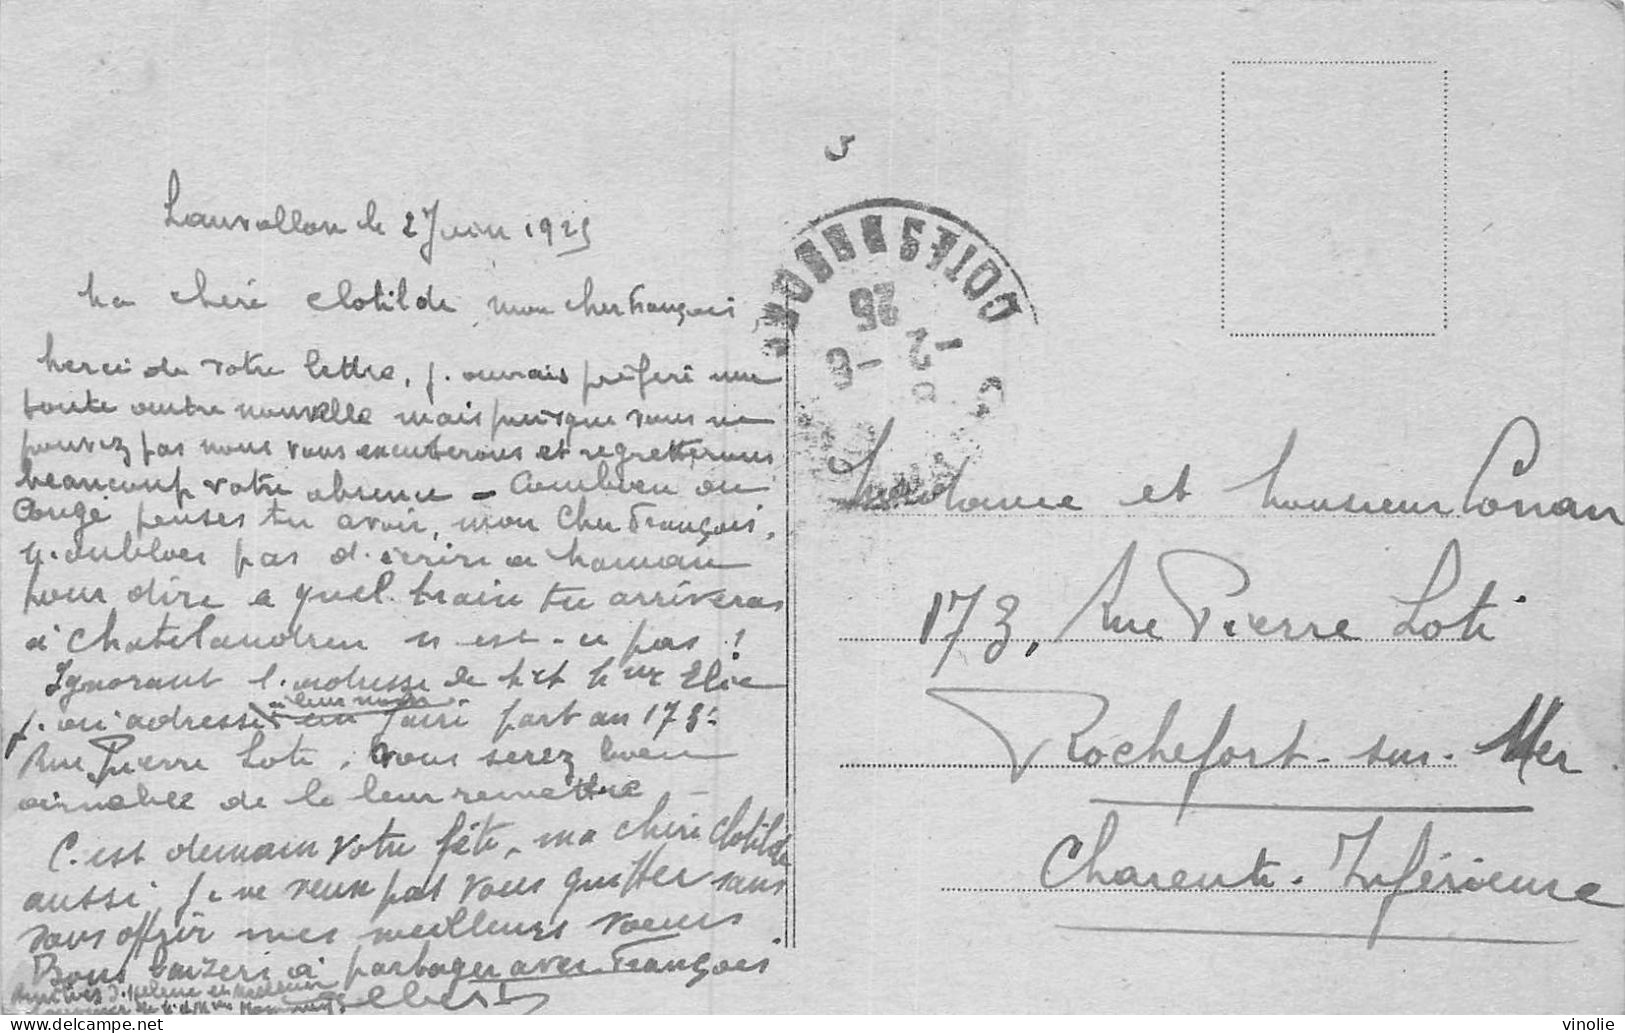 Lanvollon le 2 Juin 1925
Ma chère Clotilde, mon cher François,
Merci de votre lettre, j'aurais préféré une
toute autre nouvelle mais puisque vous ne
pouvez pas nous vous excuserons et regretterons
beaucoup votre absence - Combien de
Congé penses tu avoir, mon cher François,
N'oublies pas d'écrire à Maman
pour dire a quel train tu arriveras
à Chatelaudren n'est-ce pas!
Ignorant l'adresse de Mr Mme Elie
à leur nom
j'ai adressé faire part au 173
Rue Pierre Loti, vous serez bien
aimable de le leur remettre -
C'est demain votre fête, ma chère Clotilde
aussi, je ne veux pas vous quitter sans
vous offrir mes meilleurs voeux
Bons baizers à partager avec François
Amitiés d'Hélène et
COTES DU NORD
2 - 6
25
Madame et Monsieur Conan
173, Rue Pierre Loti
Rochefort-sur-Mer.
Charente-Inférieure
vinolie